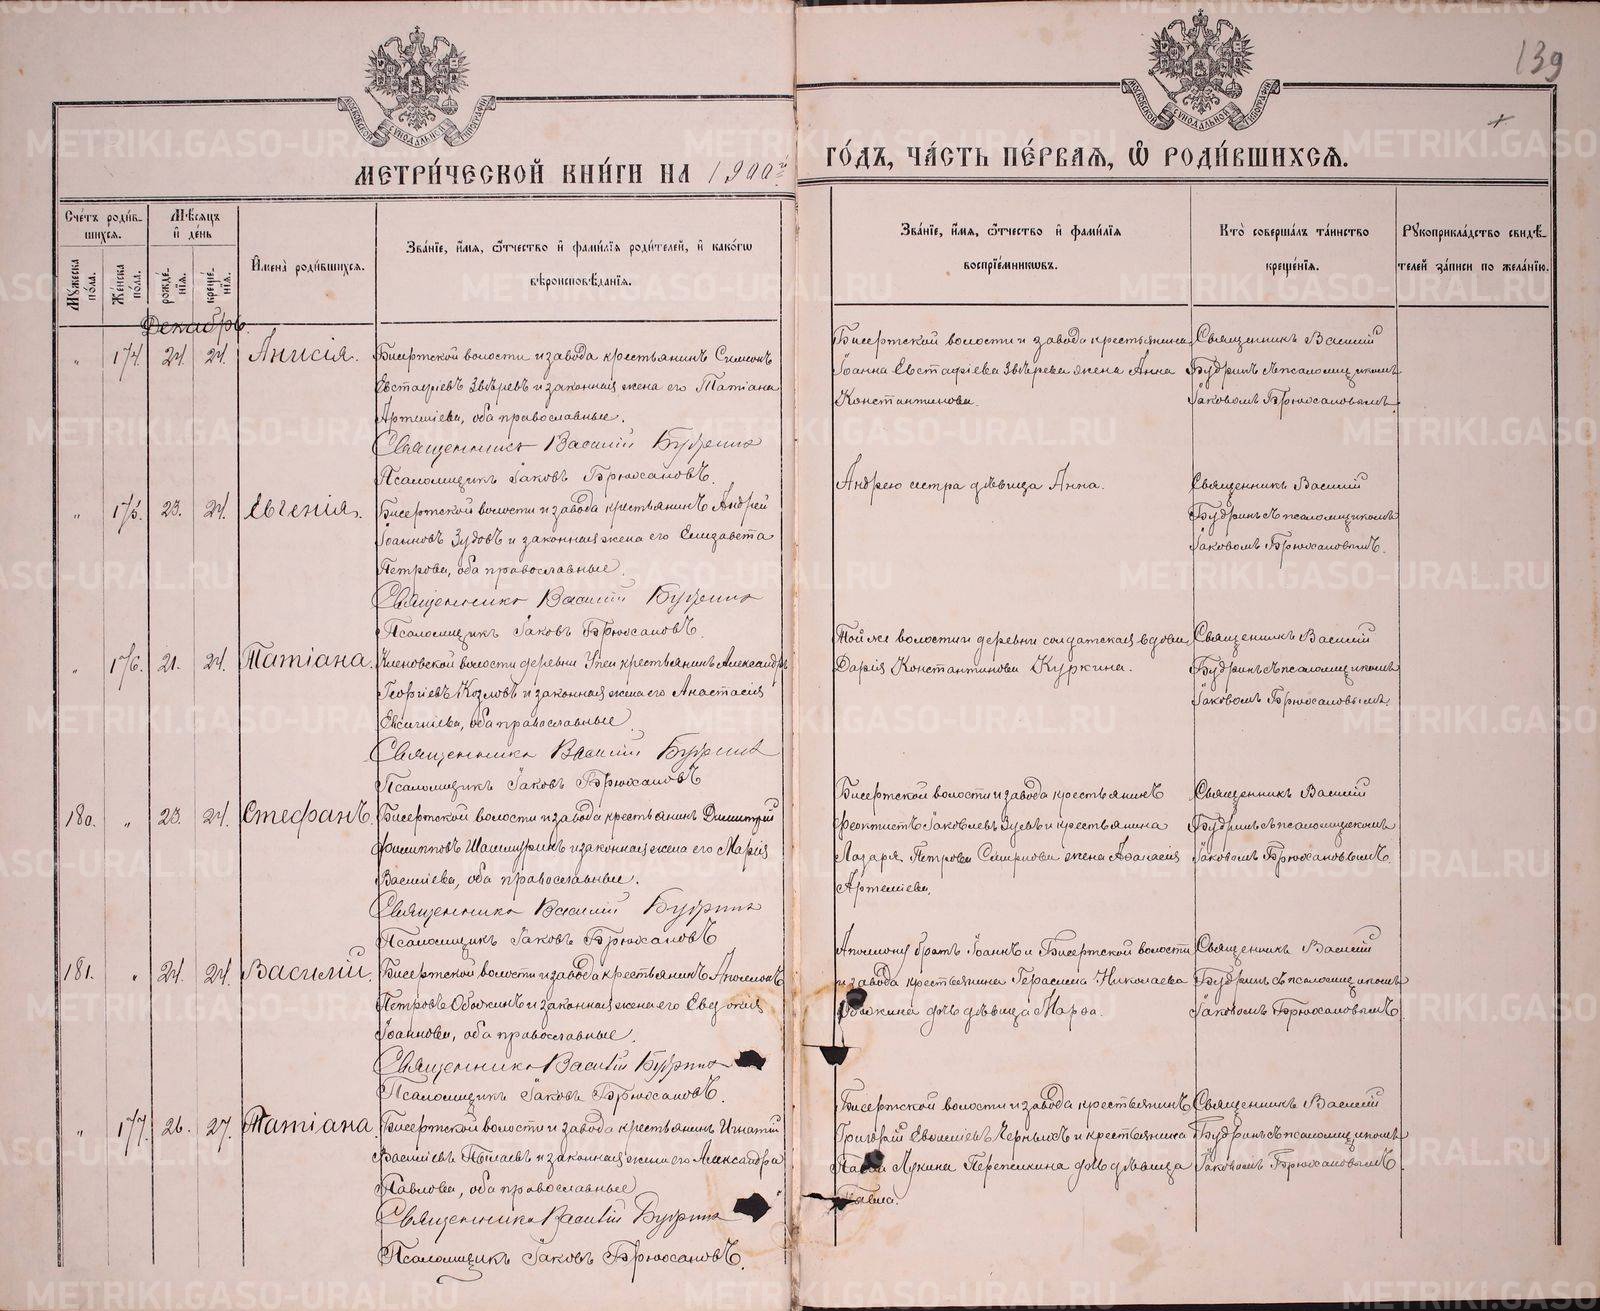 139
МОСКОВСКОЙ СУНОДАЛЬНОЙ ТИПОГРАФІИ
МОСКОВСКОЙ СУНОДАЛЬНОЙ ТИПОГРАФІИ
МЕТРИ́ЧЕСКОЙ КНИ́ГИ НА 1900й
ГО́ДЪ, ЧА́СТЬ ПЕ́РВАЯ, Ѽ РОДИ́ВШИХСЯ.
Сче́тъ роди́в-
шихся.
Му́жеска по́ла.
Же́нска по́ла.
Мѣ́сяцъ
и де́нь
рожде́нія.
креще́нія.
Имена̀ роди́вшихся.
Зва́ніе, и́мя, ѻ́тчество и фами́лія роди́телей, и како́гѡ
вѣроисповѣ́данія.
Зва́ніе, и́мя, ѻ́тчество и фами́лія
воспріе́мникѡвъ.
Кто̀ соверша́лъ та́инство
креще́нія.
Рукоприкла́дство свидѣ́-
телей за́писи по жела́нію.
Декабрь.
„ 174. 24. 24. Анисія.
Бисертской волости и завода крестьянинъ Симеонъ
Евстафіевъ Звѣревъ и законная жена его Татіана
Артеміева, оба православные.
Священникъ Василій Будринъ
Псаломщикъ Іаковъ Брюхановъ.
Бисертской волости и завода крестьянина
Іоанна Евстафіева Звѣрева жена Анна
Константинова.
Священникъ Василій
Будринъ съ псаломщикомъ
Іаковомъ Брюхановымъ.
„ 175. 23. 24. Евгенія.
Бисертской волости и завода крестьянинъ Андрей
Іоанновъ Зудовъ и законная жена его Елизавета
Петрова, оба православные.
Священникъ Василій Будринъ
Псаломщикъ Іаковъ Брюхановъ.
Андрею сестра дѣвица Анна.
Священникъ Василій
Будринъ съ псаломщикомъ
Іаковомъ Брюхановымъ.
„ 176. 21. 24. Татіана.
Кленовской волости деревни Упеи крестьянинъ Александръ
Георгіевъ Козловъ и законная жена его Анастасія
Евсигніева, оба православные.
Священникъ Василій Будринъ
Псаломщикъ Іаковъ Брюхановъ
Той же волости и деревни солдатская вдова
Дарія Константинова Куркина.
Священникъ Василій
Будринъ съ псаломщикомъ
Іаковомъ Брюхановымъ.
180. „ 23. 24. Стефанъ.
Бисертской волости и завода крестьянинъ Димитрій
Филипповъ Шашмуринъ и законная жена его Марія
Василіева, оба православные.
Священникъ Василій Будринъ
Псаломщикъ Іаковъ Брюхановъ
Бисертской волости и завода крестьянинъ
Феоктистъ Іаковлевъ Зуевъ и крестьянина
Лазаря Петрова Смирнова жена Афанасія
Артеміева.
Священникъ Василій
Будринъ съ псаломщикомъ
Іаковомъ Брюхановымъ.
181. „ 24. 24. Василій.
Бисертской волости и завода крестьянинъ Аполлонъ
Петровъ Ободкинъ и законная жена его Евдокія
Іоаннова, оба православные.
Священникъ Василій Будринъ
Псаломщикъ Іаковъ Брюхановъ.
Аполлону братъ Іоаннъ и Бисертской волости
и завода крестьянина Герасима Николаева
Ободкина дочь дѣвица Марѳа.
Священникъ Василій
Будринъ съ псаломщикомъ
Іаковомъ Брюхановымъ
„ 177. 26. 27. Татіана.
Бисертской волости и завода крестьянинъ Игнатій
Василіевъ Пылаевъ и законная жена его Александра
Павлова, оба православные
Священникъ Василій Будринъ
Псаломщикъ Іаковъ Брюхановъ.
Бисертской волости и завода крестьянинъ
Григорій Черныхъ и крестьянина
Лукина Перепелкина дочь дѣвица
Священникъ Василій
Будринъ съ псаломщикомъ
Іаковомъ Брюхановымъ.
METRIKI.GASO-URAL.RU